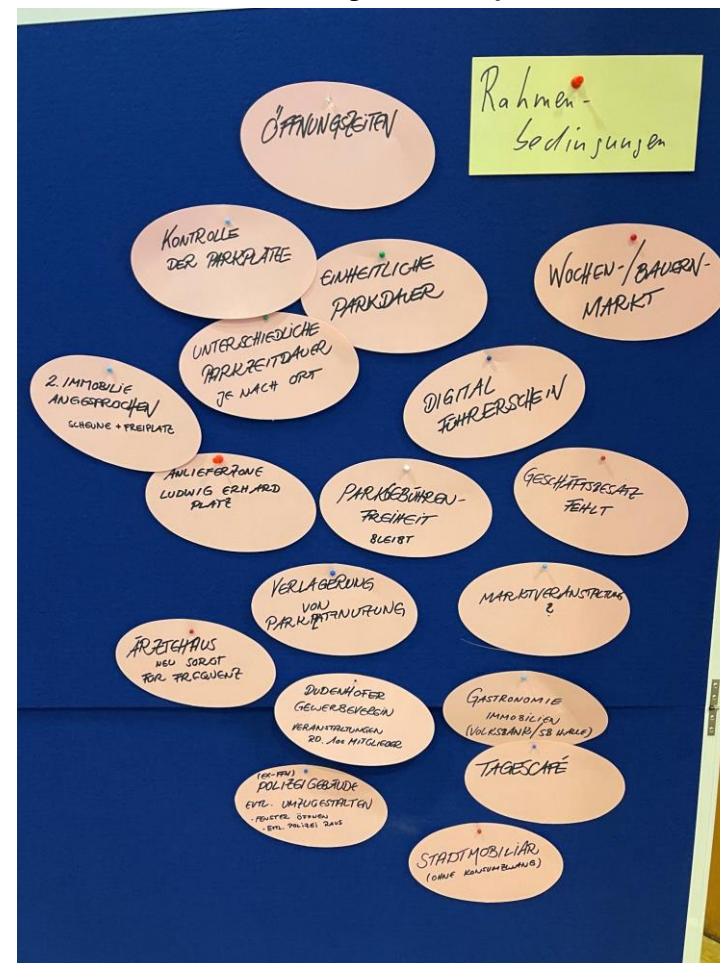 Rahmen-
bedingungen
ÖFFNUNGSZEITEN
KONTROLLE
DER PARKPLÄTZE
EINHEITLICHE
PARKDAUER
WOCHEN-/BAUERN-
MARKT
UNTERSCHIEDLICHE
PARKZEITDAUER
JE NACH ORT
2. IMMOBILIE
ANGESPROCHEN
SCHEUNE + FREIPLATZ
DIGITAL
FÜHRERSCHEIN
ANLIEFERZONE
LUDWIG ERHARD
PLATZ
PARKGEBÜHREN-
FREIHEIT
BLEIBT
GESCHÄFTSBESATZ
FEHLT
VERLAGERUNG
VON
PARKPLATZNUTZUNG
MARKTVERANSTALTUNG
?
ÄRZTEHAUS
NEU SORGT
FÜR FREQUENZ
DUDENHÖFER
GEWERBEVEREIN
VERANSTALTUNGEN
RD. 100 MITGLIEDER
GASTRONOMIE
IMMOBILIEN
(VOLKSBANK/SB HALLE)
TAGESCAFÉ
(EX-FFW)
POLIZEIGEBÄUDE
EVTL. UMZUGESTALTEN
- FENSTER ÖFFNEN
- EVTL. POLIZEI RAUS
STADTMOBILIÄR
(OHNE KONSUMZWANG)